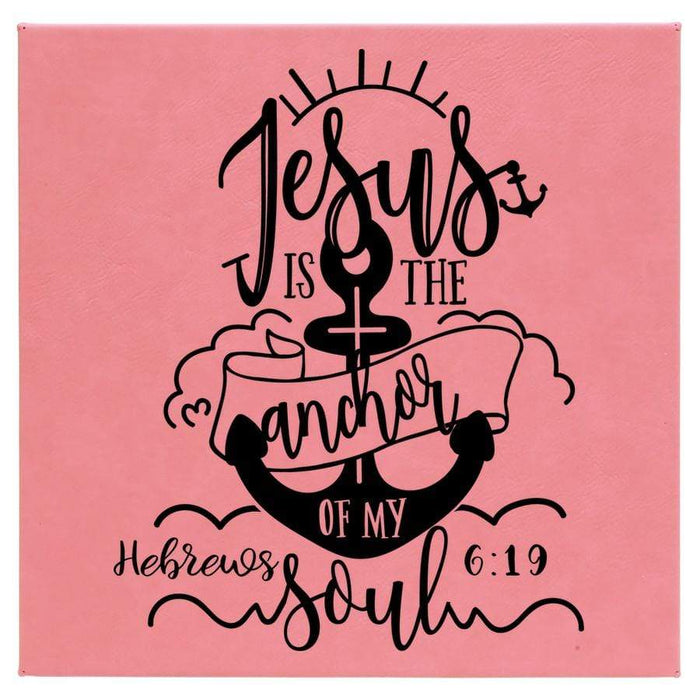 Jesus
IS THE
anchor
OF MY
Hebrews 6:19
soul